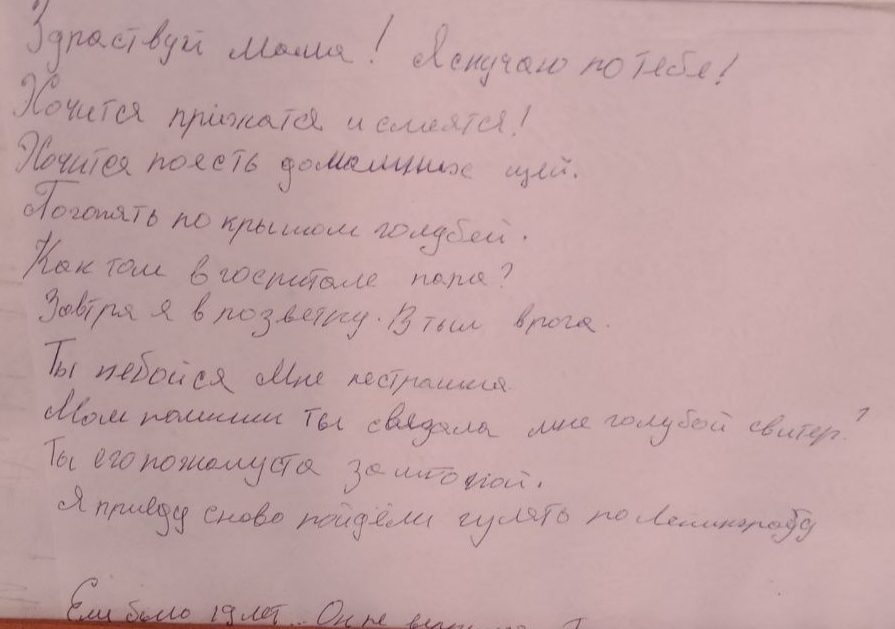 Здраствуй мама! Я скучаю по тебе!
Хочится прižатся и смеятся!
Хочится поесть домашних щей.
Погонять по крышам голубей.
Как там в госпитале папа?
Завтра я в розветку. В тыл врага.
Ты небойся Мне нестрашна
Мам помниш ты свядала мне голубой свитер?
Ты его пожалуста заштопой.
Я приеду снова пойдём гулять по Ленинграду
Ему было 19 лет... Он не